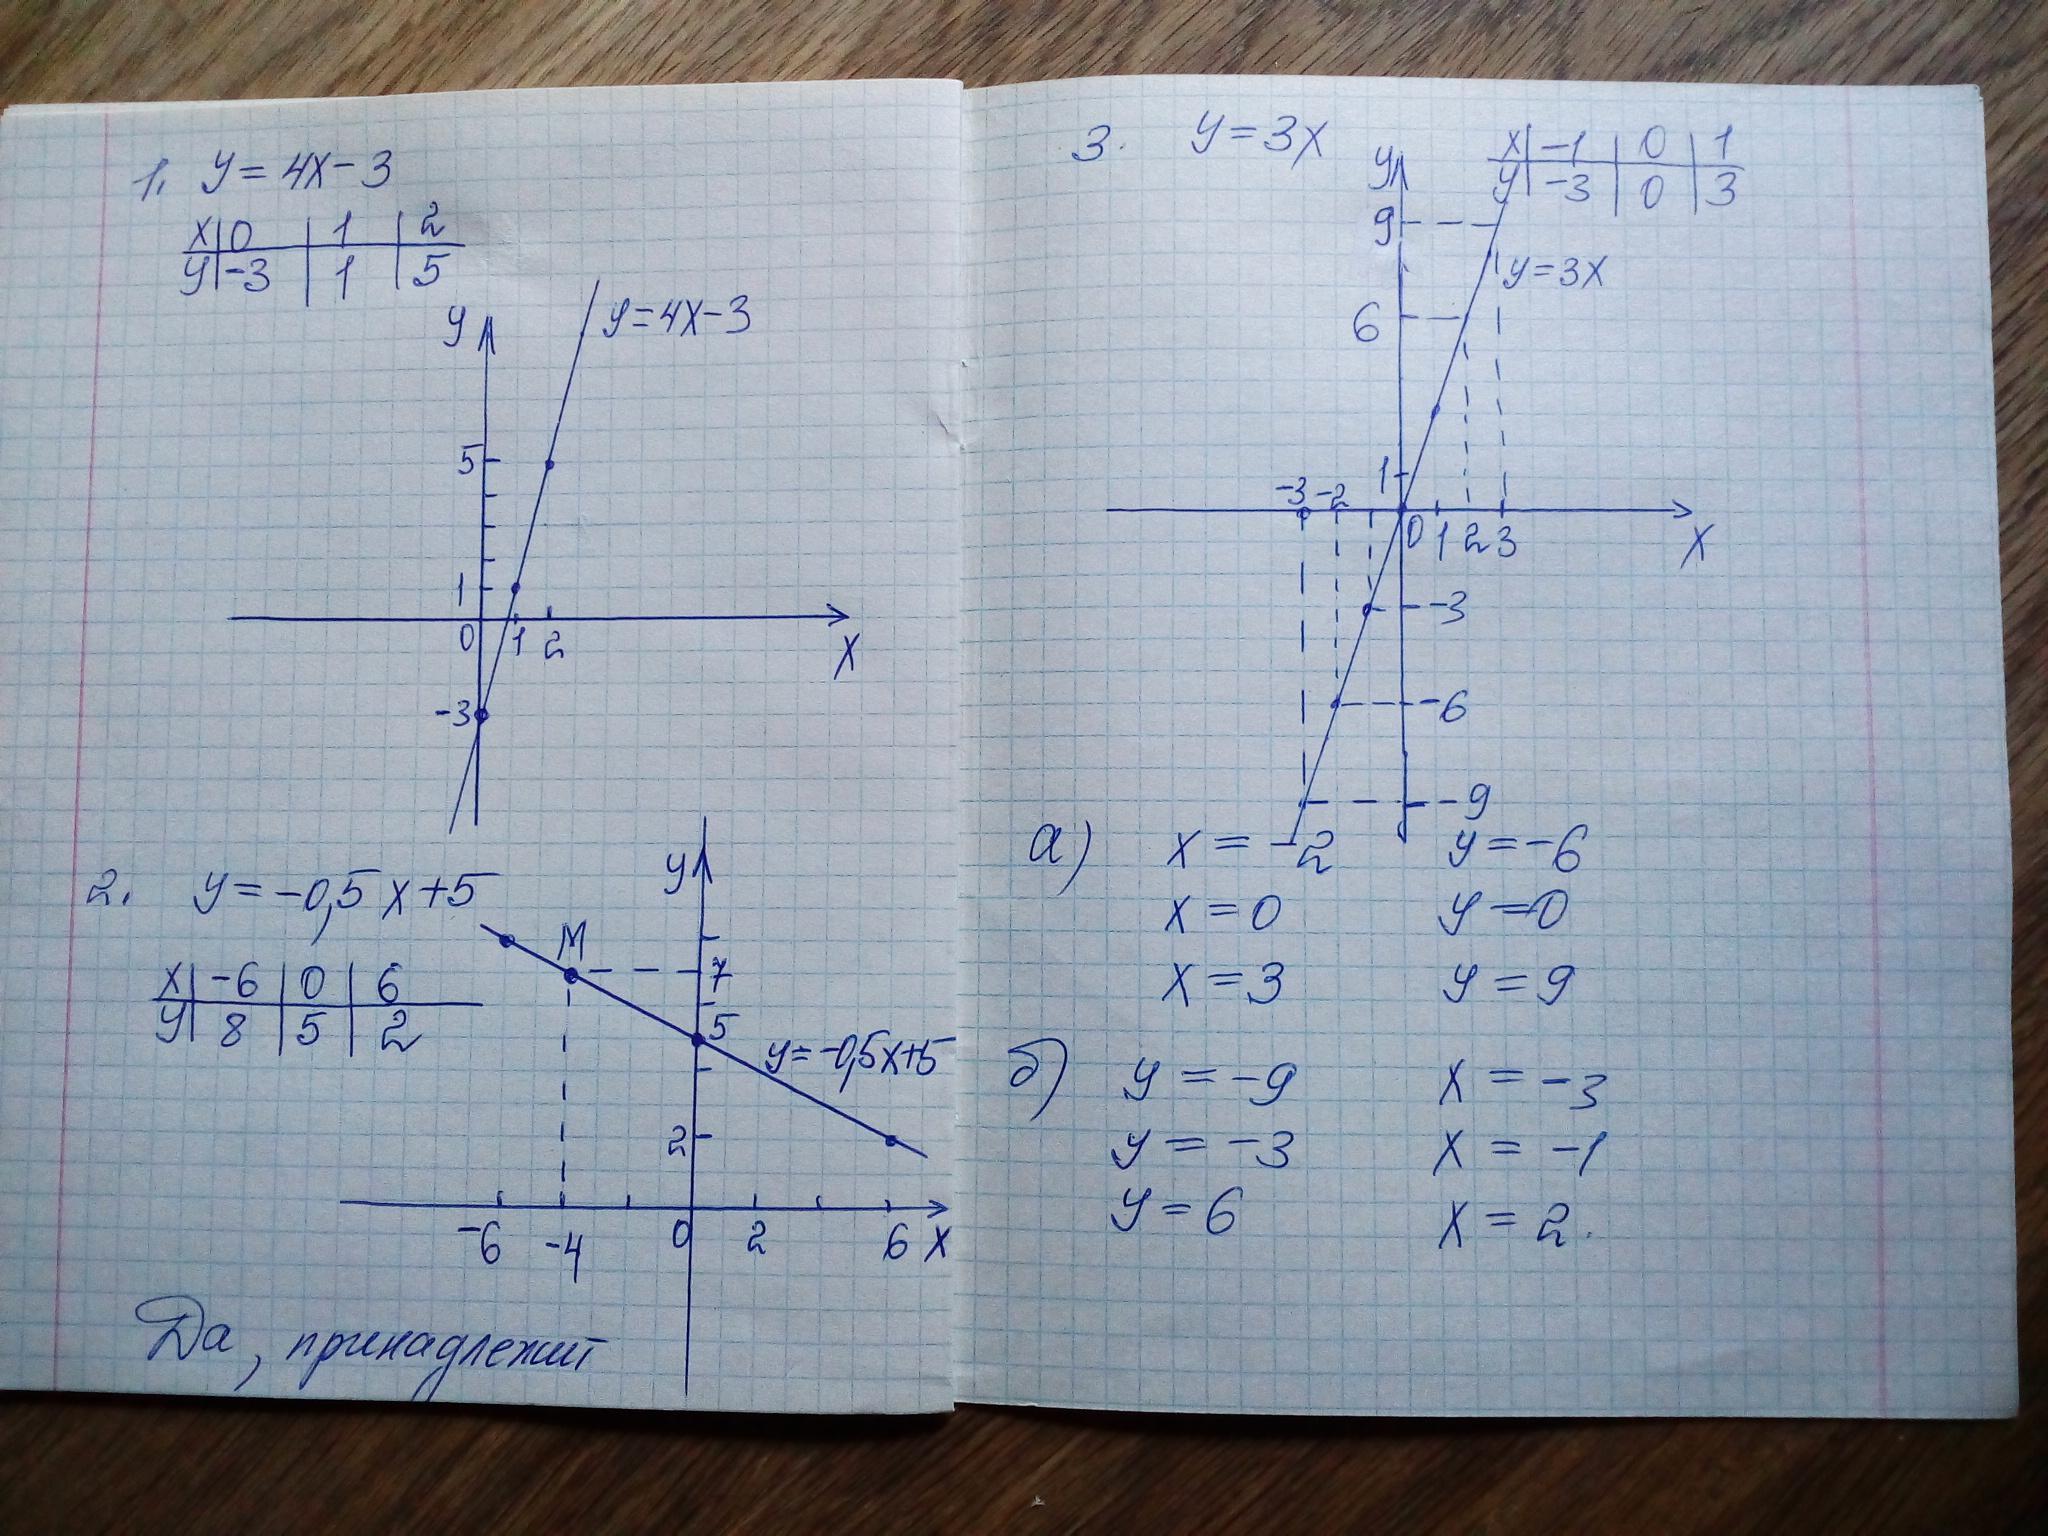 1. y = 4x - 3
x | 0 | 1 | 2
y | -3 | 1 | 5
y
y=4x-3
5
1
0 1 2
x
-3
2. y = -0,5x+5
x | -6 | 0 | 6
y | 8 | 5 | 2
y
M
7
5
y=-0,5x+5
2
-6 -4 0 2 6 x
Да, принадлежит
3. y = 3x
x | -1 | 0 | 1
y | -3 | 0 | 3
y
9
y=3x
6
1
-3 -2
0 1 2 3
x
-3
-6
-9
а) x = -2 y = -6
x = 0 y = 0
x = 3 y = 9
б) y = -9 x = -3
y = -3 x = -1
y = 6 x = 2.